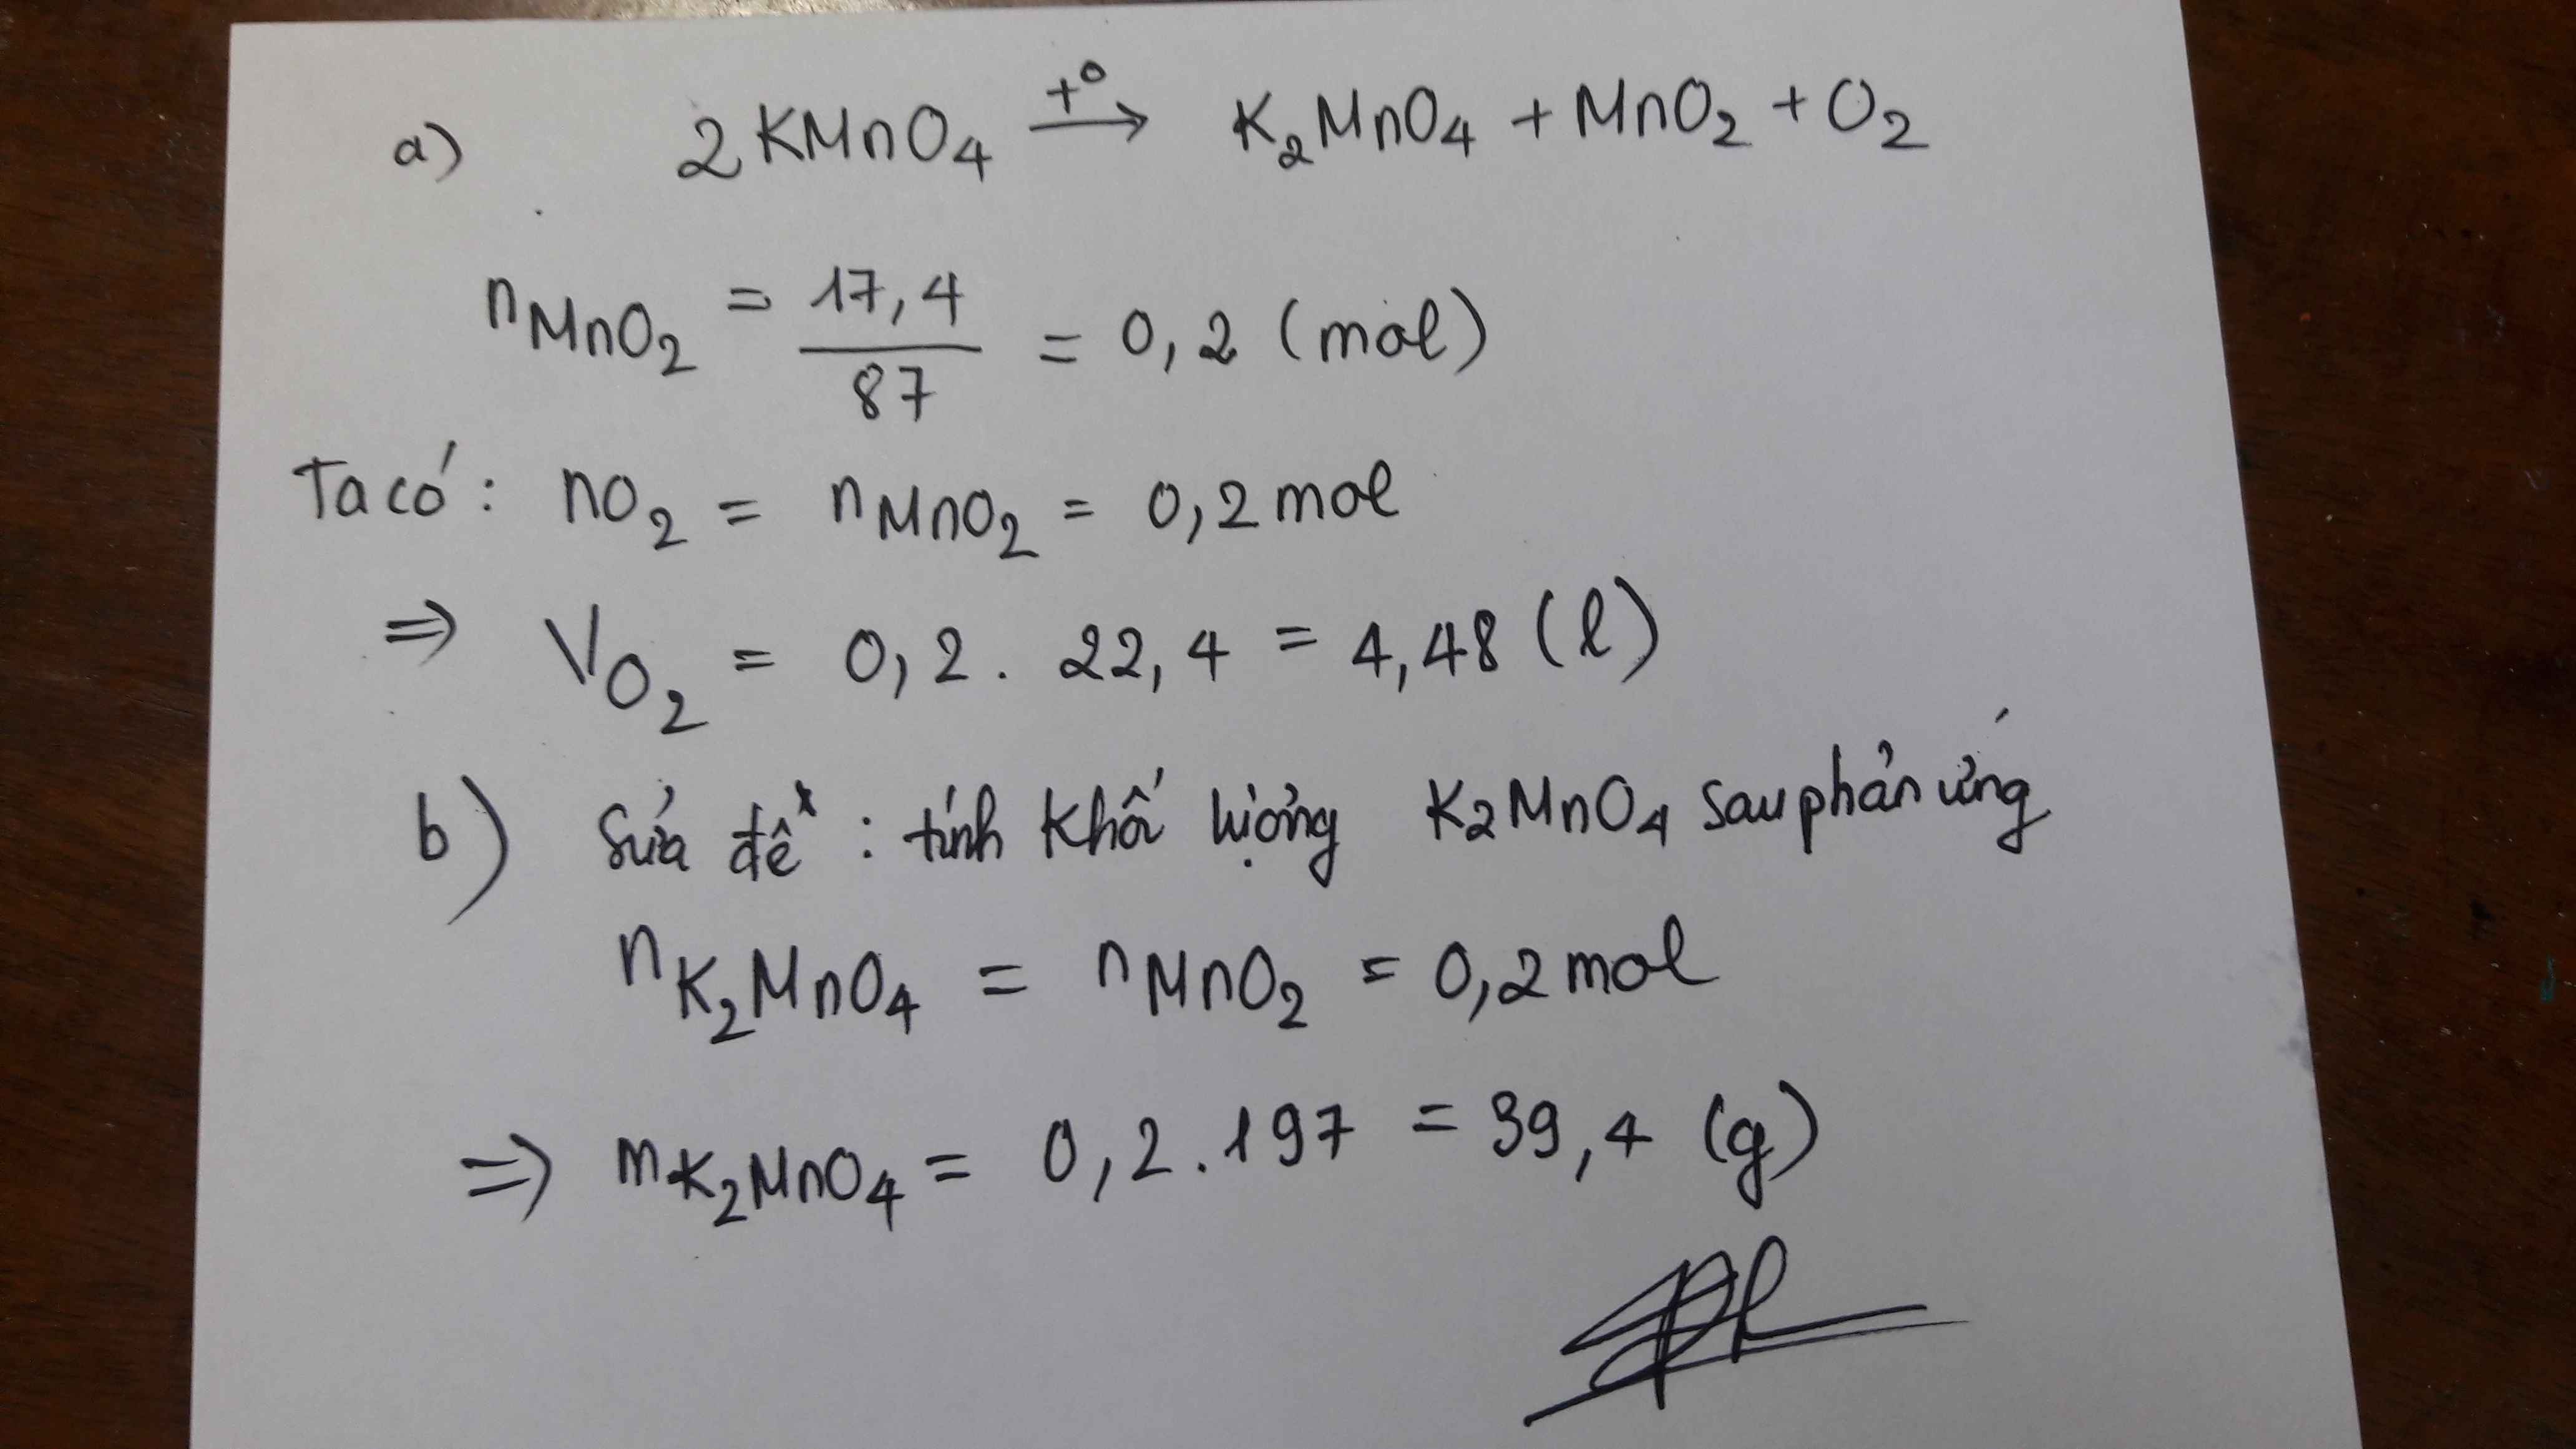 a) 2KMnO₄ —t°→ K₂MnO₄ + MnO₂ + O₂
nMnO₂ = 17,4 / 87 = 0,2 (mol)
Ta có: nO₂ = nMnO₂ = 0,2 mol
⇒ VO₂ = 0,2 . 22,4 = 4,48 (l)
b) Sửa đề: tính khối lượng K₂MnO₄ sau phản ứng
nK₂MnO₄ = nMnO₂ = 0,2 mol
⇒ mK₂MnO₄ = 0,2 . 197 = 39,4 (g)